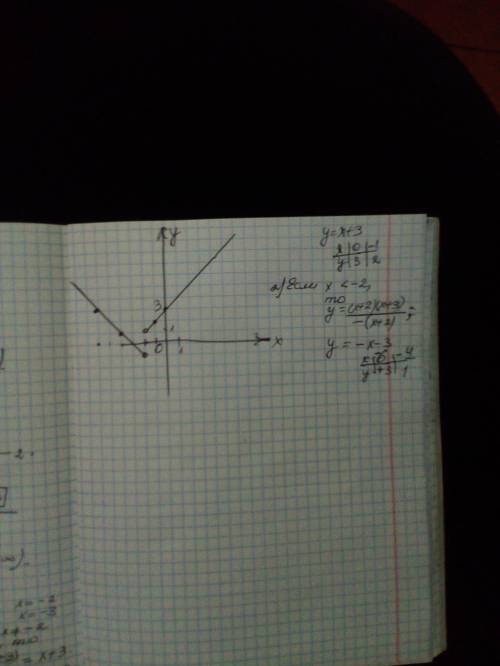 y
3
1
0
1
x
y=x+3
x | 0 | -1
y | 3 | 2
2) Если x < -2,
то
y = (x+2)(x+3) / -(x+2) ;
y = -x-3
-4
y | +3 | 1
-2.
x = -2
x = -3
x ≠ -2
то
= x+3